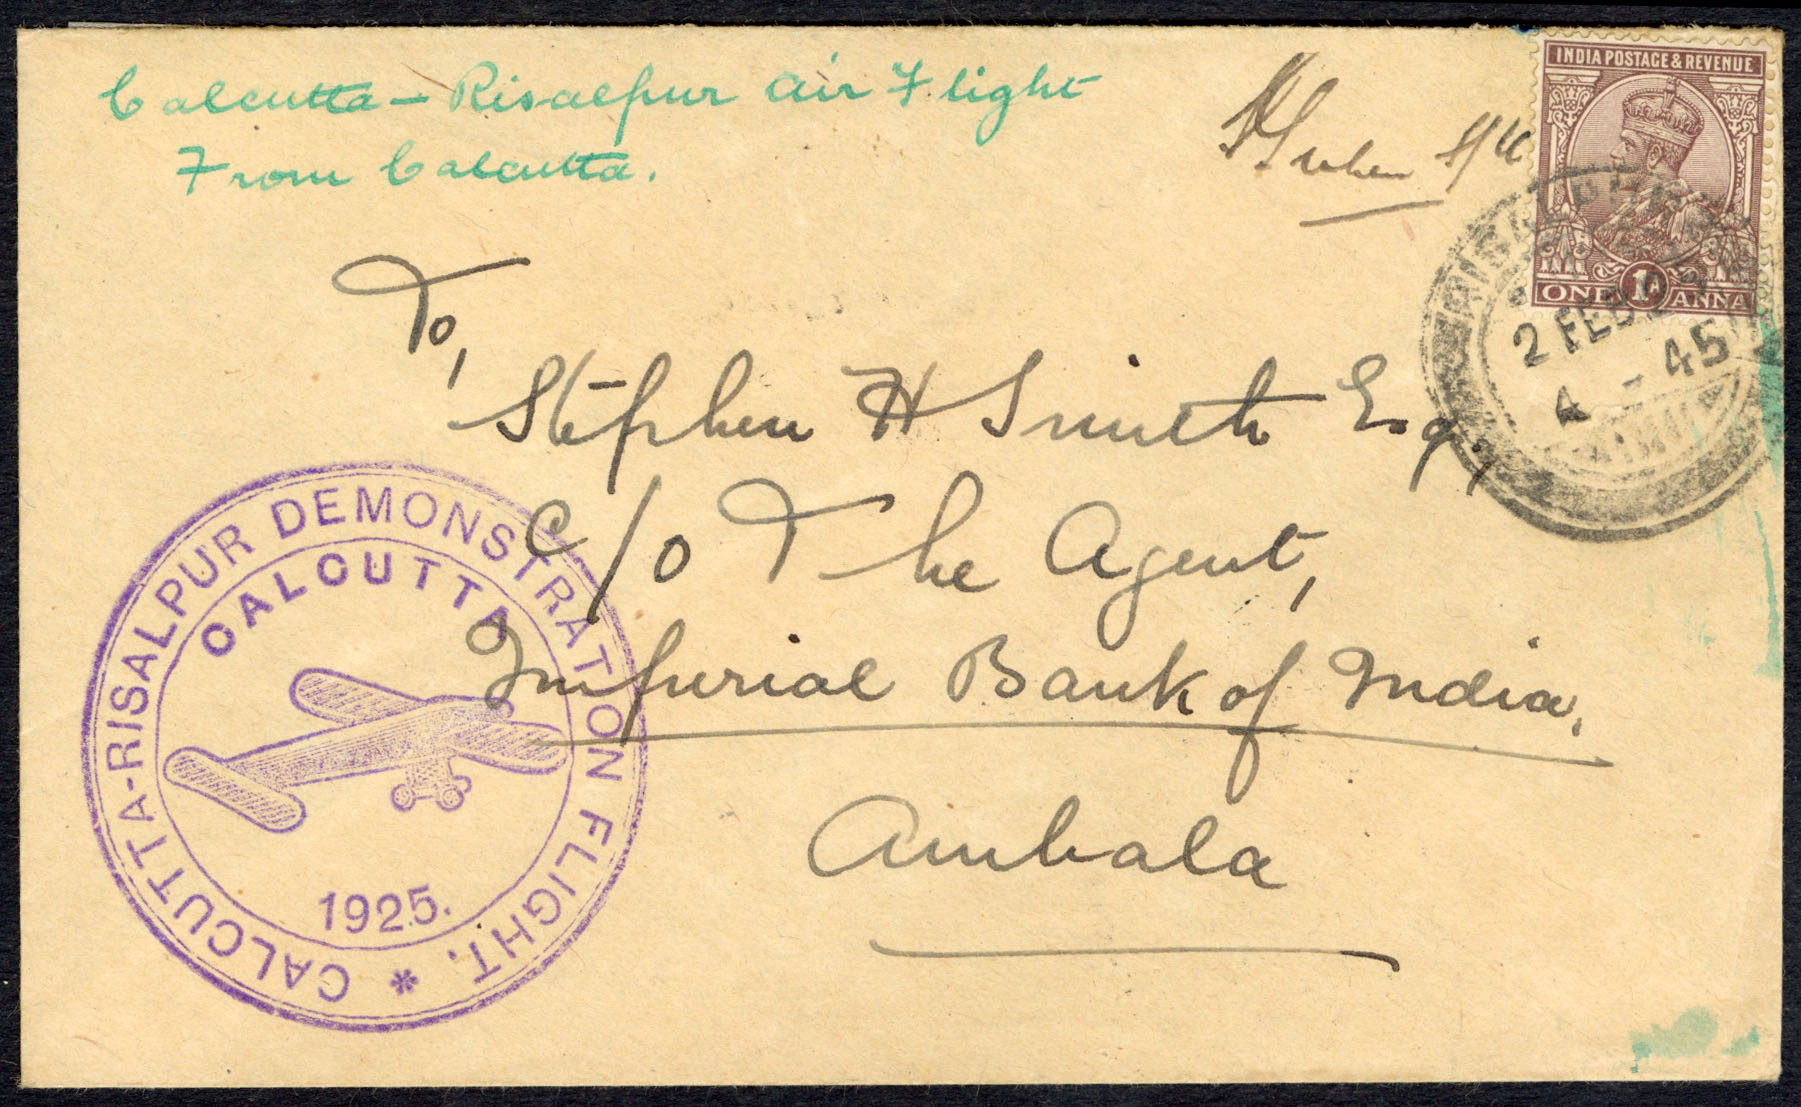 Calcutta - Risalpur Air Flight
From Calcutta.
INDIA POSTAGE & REVENUE
ONE 1A ANNA
2 FEB
4 - 45
To,
Stephen H Smith Esq,
c/o The Agent,
Imperial Bank of India,
Ambala
CALCUTTA-RISALPUR DEMONSTRATION FLIGHT. *
CALCUTTA
1925.